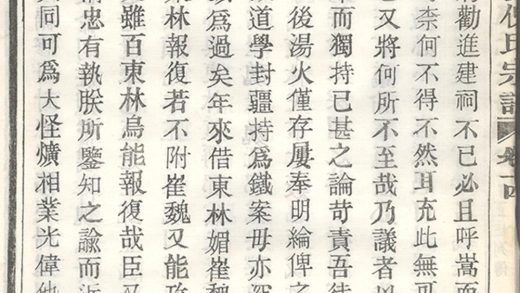 氏宗譜 卷十四
勸進建祠不已必且呼嵩而
奈何不得不然耳充此無可
又將何所不至哉乃議者以
而獨持已甚之論苛責吾徒
後湯火僅存屢奉明綸俾之
道學封疆持爲鐵案毋亦深
爲過矣年來借東林媚崔魏
東林報復若不附崔魏又能
雖百東林烏能報復哉臣又
忠有執朕所鑒知之諭而近
同可爲大怪爌相業光偉他